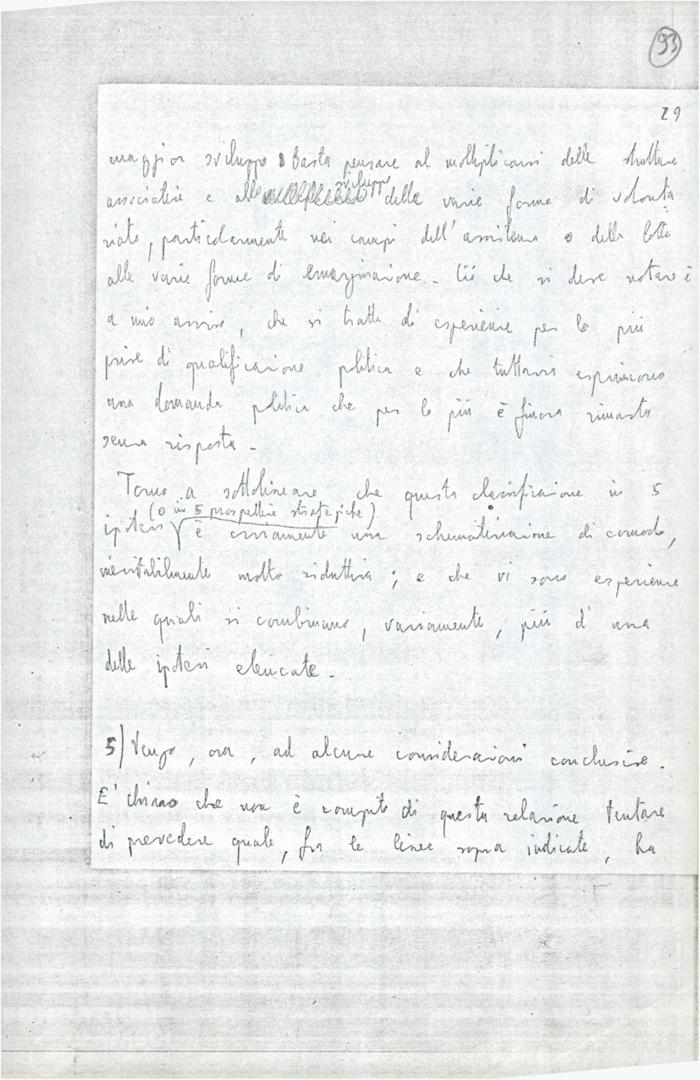 93
29
maggior sviluppo. Basta pensare al moltiplicarsi delle strutture
associative e allo sviluppo delle varie forme di volonta
riato, particolarmente nei campi dell'assistenza o della lotta
alle varie forme di emarginazione. Ciò che si deve notare è
a mio avviso, che si tratta di esperienze per lo più
prive di qualificazione politica e che tuttavia esprimono
una domanda politica che per lo più è finora rimasta
senza risposta.
Torno a sottolineare che questa classificazione in 5
ipotesi (o in 5 prospettive strategiche) è ovviamente una schematizzazione di comodo,
inevitabilmente molto riduttiva; e che vi sono esperienze
nelle quali si combinano, variamente, più d'una
delle ipotesi elencate.
5) Vengo, ora, ad alcune considerazioni conclusive.
E' chiaro che non è compito di questa relazione tentare
di prevedere quale, fra le linee sopra indicate, ha